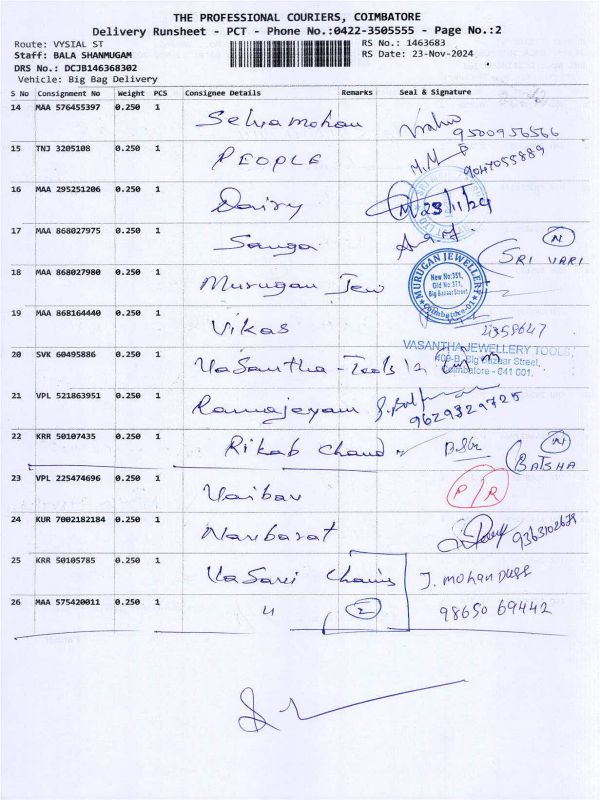 THE PROFESSIONAL COURIERS, COIMBATORE
Delivery Runsheet - PCT - Phone No.:0422-3505555 - Page No.:2
Route: VYSIAL ST RS No.: 1463683
Staff: BALA SHANMUGAM RS Date: 23-Nov-2024
DRS No.: DCJB146368302
Vehicle: Big Bag Delivery
S No Consignment No Weight PCS Consignee Details Remarks Seal & Signature
14 MAA 576455397 0.250 1 Selvamohan
9500956566
15 TNJ 3205108 0.250 1 PEOPLE
9047055889
16 MAA 295251206 0.250 1 Dairy 23/11/24
17 MAA 868027975 0.250 1 Sanga N
SRI VARI
18 MAA 868027980 0.250 1 Murugan Jew
MURUGAN JEWELLERY
New No:351,
Old No:371,
Big Bazaar Street,
Coimbatore-01
19 MAA 868164440 0.250 1 Vikas
VASANTHA JEWELLERY TOOLS,
409-B, Big Bazaar Street,
Coimbatore - 641 001.
20 SVK 60495886 0.250 1 Vasantha - Tools
21 VPL 521863951 0.250 1 Ramajeyam
9629329725
22 KRR 50107435 0.250 1 Rikab Chand N
BATSHA
23 VPL 225474696 0.250 1 Vaibav P/R
24 KUR 7002182184 0.250 1 Navbarat
25 KRR 50105785 0.250 1 Vasavi Chains J. mohan Dass
26 MAA 575420011 0.250 1 " 2 98650 69442